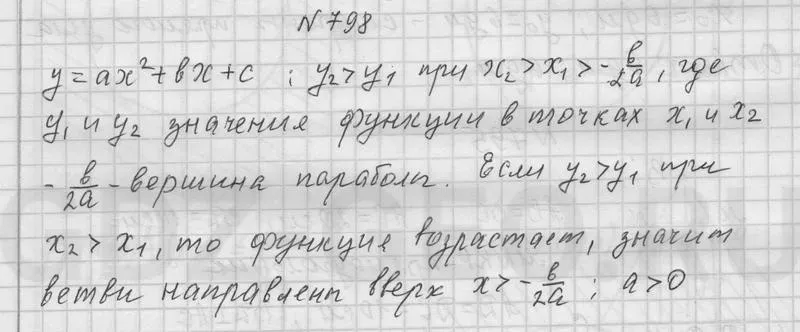 N 798
y = ax² + bx + c ; y₂ > y₁ при x₂ > x₁ > -b/2a, где
y₁ и y₂ значения функции в точках x₁ и x₂
- b/2a - вершина параболы. Если y₂ > y₁ при
x₂ > x₁, то функция возрастает, значит
ветви направлены вверх x > -b/2a ; a > 0